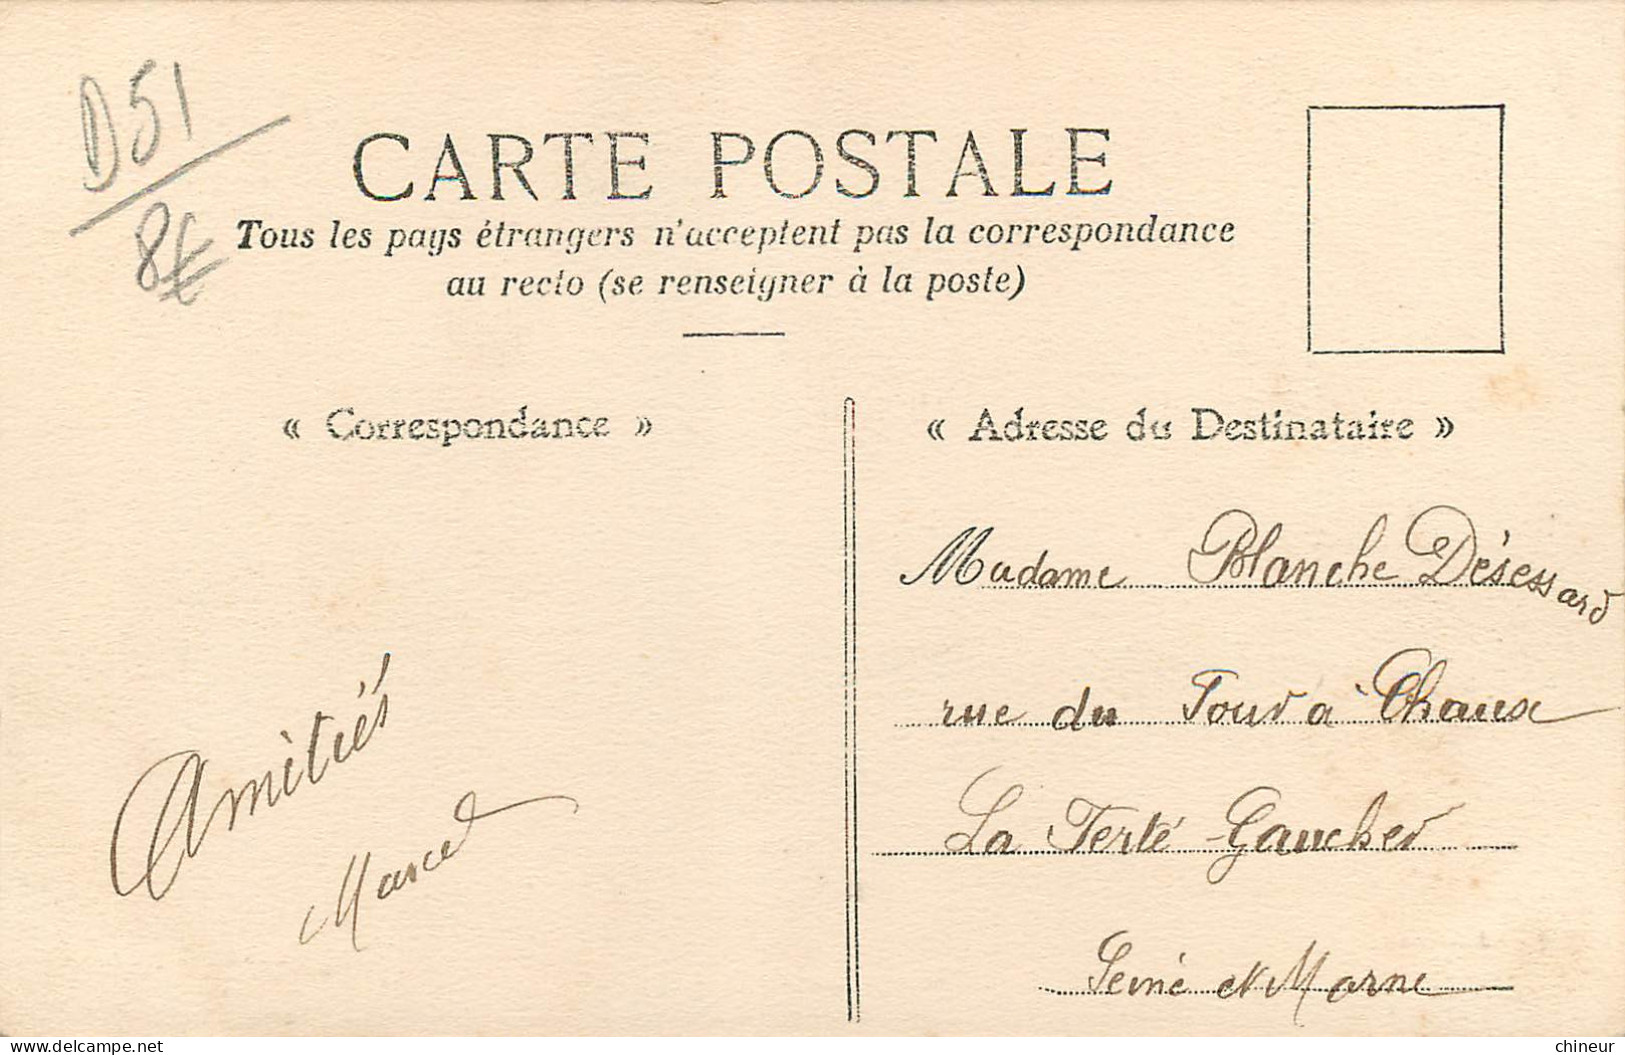 D51
8€
CARTE POSTALE
Tous les pays étrangers n'acceptent pas la correspondance
au recto (se renseigner à la poste)
« Correspondance »
« Adresse du Destinataire »
Madame Blanche Désessard
rue du Four à Chaux
La Ferté-Gaucher
Seine et Marne
Amitiés
Marcel
delcampe.net
chineur